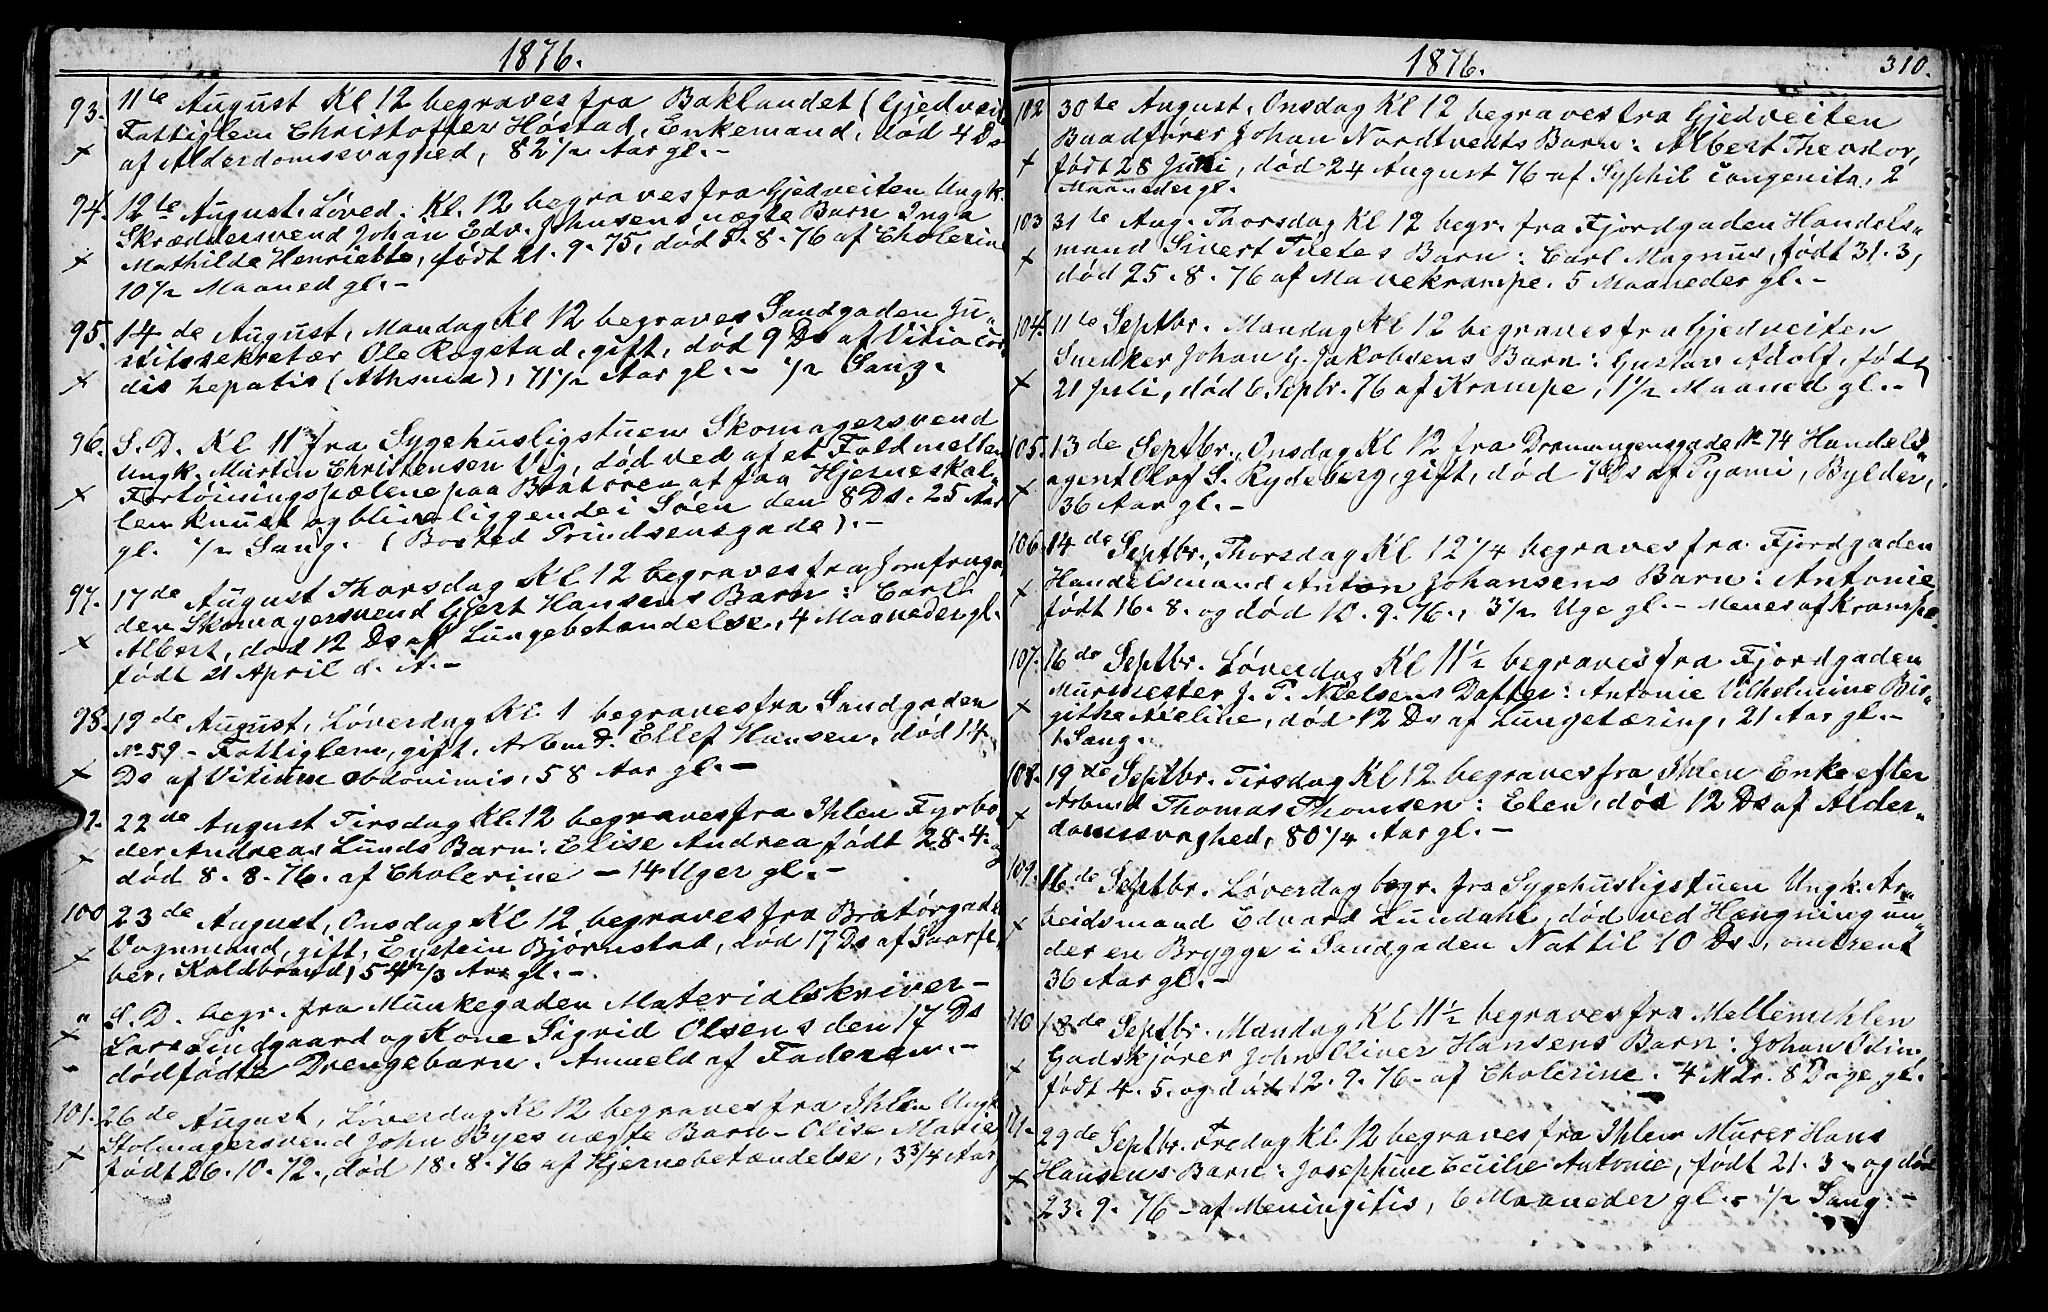 1876.
93. 11te August Kl 12 begraves fra Baklandet (Gjedveit
Fattiglem Christoffer Høstad, Enkemand, død 4 Ds
af Alderdomssvaghed, 82 1/2 Aar gl. -
94. 12te August. Løved. Kl. 12 begraves fra Gjedveiten Ungk.
Skræddersvend Johan Edv. Johnsens uægte Barn Inga
Mathilde Henriette, født 21. 9. 75, død 5. 8. 76 af Cholerine
10 1/2 Maaned gl. -
95. 14de August, Mandag Kl 12 begraves Sandgaden Ju-
stitssekretær Ole Rogstad, gift, død 9 Ds af Vitia cor-
dis hepatis (Athsma), 71 1/2 Aar gl. - 1/2 Sang.
96. S. D. Kl 11 fra Sygehusligstuen Skomagersvend
Ungk. Martin Christensen Vig, død ved af et Fald mellem
Fortøiningspælene paa Bratøren at faa Hjerneskal-
len knust og blive liggende i Søen den 8 Ds. 25 Aar
gl. 1/2 Sang. (Bosted Prindsensgade). -
97. 17de August Thorsdag Kl 12 begraves fra Jomfruga-
den Skomagersvend Gjert Hansens Barn: Carl
Albert, død 12 Ds af Lungebetændelse, 4 Maaneder gl.
født 21 April d. A. -
98. 19de August, Løverdag Kl. 1 begraves fra Sandgaden
No 59 - Fattiglem, gift, Arbmd. Ellef Hansen, død 14
Ds af Vitium abdonimis, 58 Aar gl. -
9. 22de August Tirsdag Kl. 12 begraves fra Ihlen Fyrbø-
der Andreas Lunds Barn: Elise Andrea født 28. 4. og
død 8. 8. 76. af Cholerine - 14 Uger gl. -
100 23de August, Onsdag Kl 12 begraves fra Bratørgade
Vognmand, gift, Eystein Bjørnstad, død 17 Ds af Saarfe-
ber, Koldbrand, 54 Aar gl. -
" S. D. begr. fra Munkegaden Materialskriver-
Lars Lindgaard og Kone Sigrid Olsens den 17 Ds
dødfødte Drengebarn. Anmeld af Faderen. -
101. 26de August, Løverdag Kl 12 begraves fra Ihlen Ungk
Stolmagersvend John Byes uægte Barn - Olise Marie
født 26. 10. 72., død 18. 8. 76 af Hjernebetændelse, 3 3/4 Aar
1876. 310.
102 30te August, Onsdag Kl 12 begraves fra Gjedveiten
Baadfører Johan Nordtvedts Barn: Albert Theodor,
født 28 Juni, død 24 August 76 af Syphil congenita, 2
Maaneder gl.
103 31te Aug. Thorsdag Kl 12 begr. fra Fjordgaden Handels-
mand Sivert Tvetes Barn: Carl Magnus, født 31. 3,
død 25. 8. 76 af Mavekrampe. 5 Maaneder gl. -
104. 11te Septbr. Mandag Kl 12 begraves fra Gjedveiten
Snedker Johan G. Jakobsens Barn: Gustav Adolf, født
21 Juli, død 6 Septbr. 76 af Krampe, 1 1/2 Maaned gl. -
105. 13de Septbr., Onsdag Kl 12 fra Dronningensgade No 74 Handels-
agent Olof S. Rydeberg, gift, død Ds af Pyæmi, Bylder,
36 Aar gl. -
106. 14de Septbr., Thorsdag Kl 12 1/4 begraves fra Fjordgaden
Handelsmand Anton Johansens Barn: Antonie
født 16. 8. og død 10. 9. 76., 3 1/2 Uge gl. - Menes af Krampe.
107. 16de Septbr. Løverdag Kl 11 1/2 begraves fra Fjordgaden
Murmester J. P. Nielsens Datter: Antonie Vilhelmine Bir-
githe, død 12 Ds af Lungetæring, 21 Aar gl. -
1 Sang.
108. 19de Septbr. Tirsdag Kl 12 begraves fra Ihlen Enke efter
Arbmd Thomas Thomsen: Elen, død 12 Ds af Alder-
domssvaghed, 80 1/4 Aar gl. -
109. 16de Septbr. Løverdag begr. fra Sygehusligstuen Ungk. Ar-
beidsmand Edvard Lundahl, død ved Hængning un-
der en Brygge i Sandgaden Nat til 10 Ds, omtrent
36 Aar gl. -
110 18de Septbr. Mandag Kl 11 1/2 begraves fra Mellemihlen
Gadskjører John Oliver Hansens Barn: Johan Odin
født 4. 5. og død 12. 9. 76 - af Cholerine. 4 Mdr. 8 Dage gl.
111. 29de Septbr. Fredag Kl. 12 begraves fra Ihlen Murer Hans
Hansens Barn: Josephine Cecilie Antonie, født 21. 3. og død
23. 9. 76 - af Meningitis, 6 Maaneder gl. - 1/2 Sang. -